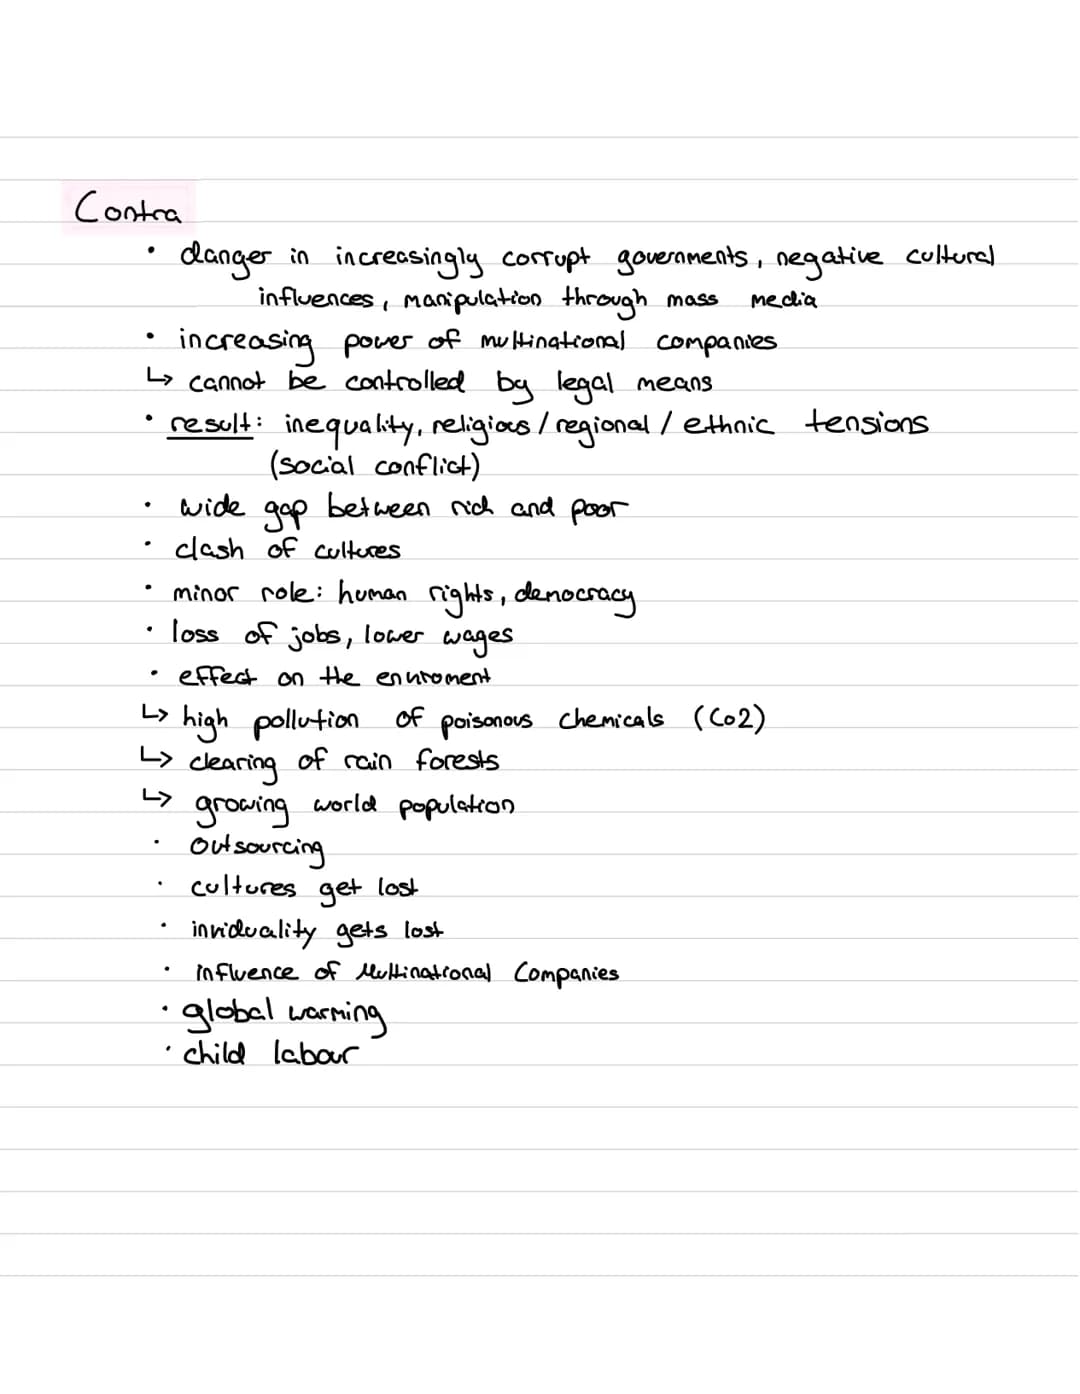 Contra
• danger in increasingly corrupt governments, negative cultural
influences, manipulation through mass media
• increasing power of multinational companies
↳ cannot be controlled by legal means
• result: inequality, religious / regional / ethnic tensions
(social conflict)
• wide gap between rich and poor
• clash of cultures
• minor role: human rights, democracy
• loss of jobs, lower wages
• effect on the enviroment
↳ high pollution of poisonous chemicals (Co2)
↳ clearing of rain forests
↳ growing world population
• Outsourcing
• cultures get lost
• inviduality gets lost
• influence of Multinational Companies
• global warming
• child labour